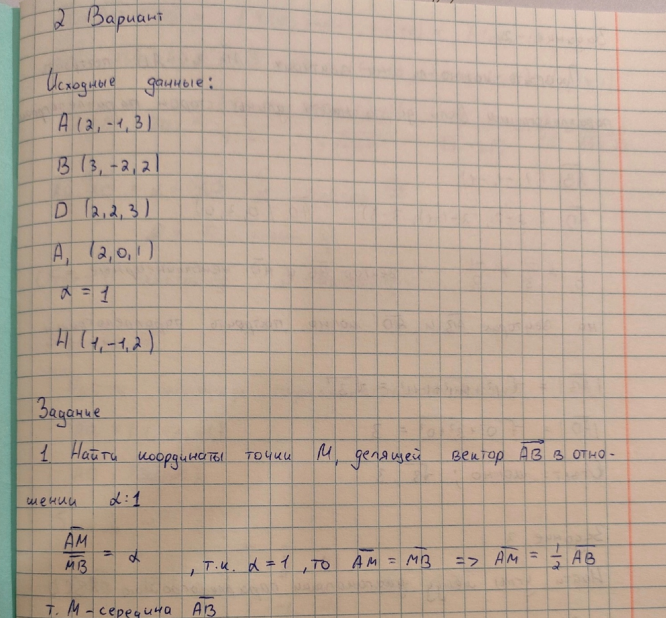 2 Вариант
Исходные данные:
A (2, -1, 3)
B (3, -2, 2)
D (2, 2, 3)
A₁ (2, 0, 1)
α = 1
H (1, -1, 2)
Задание
1 Найти координаты точки M, делящей вектор AB в отно-
шении α:1
AM/MB = α, т.к. α = 1, то AM = MB => AM = 1/2 AB
т. M - середина AB